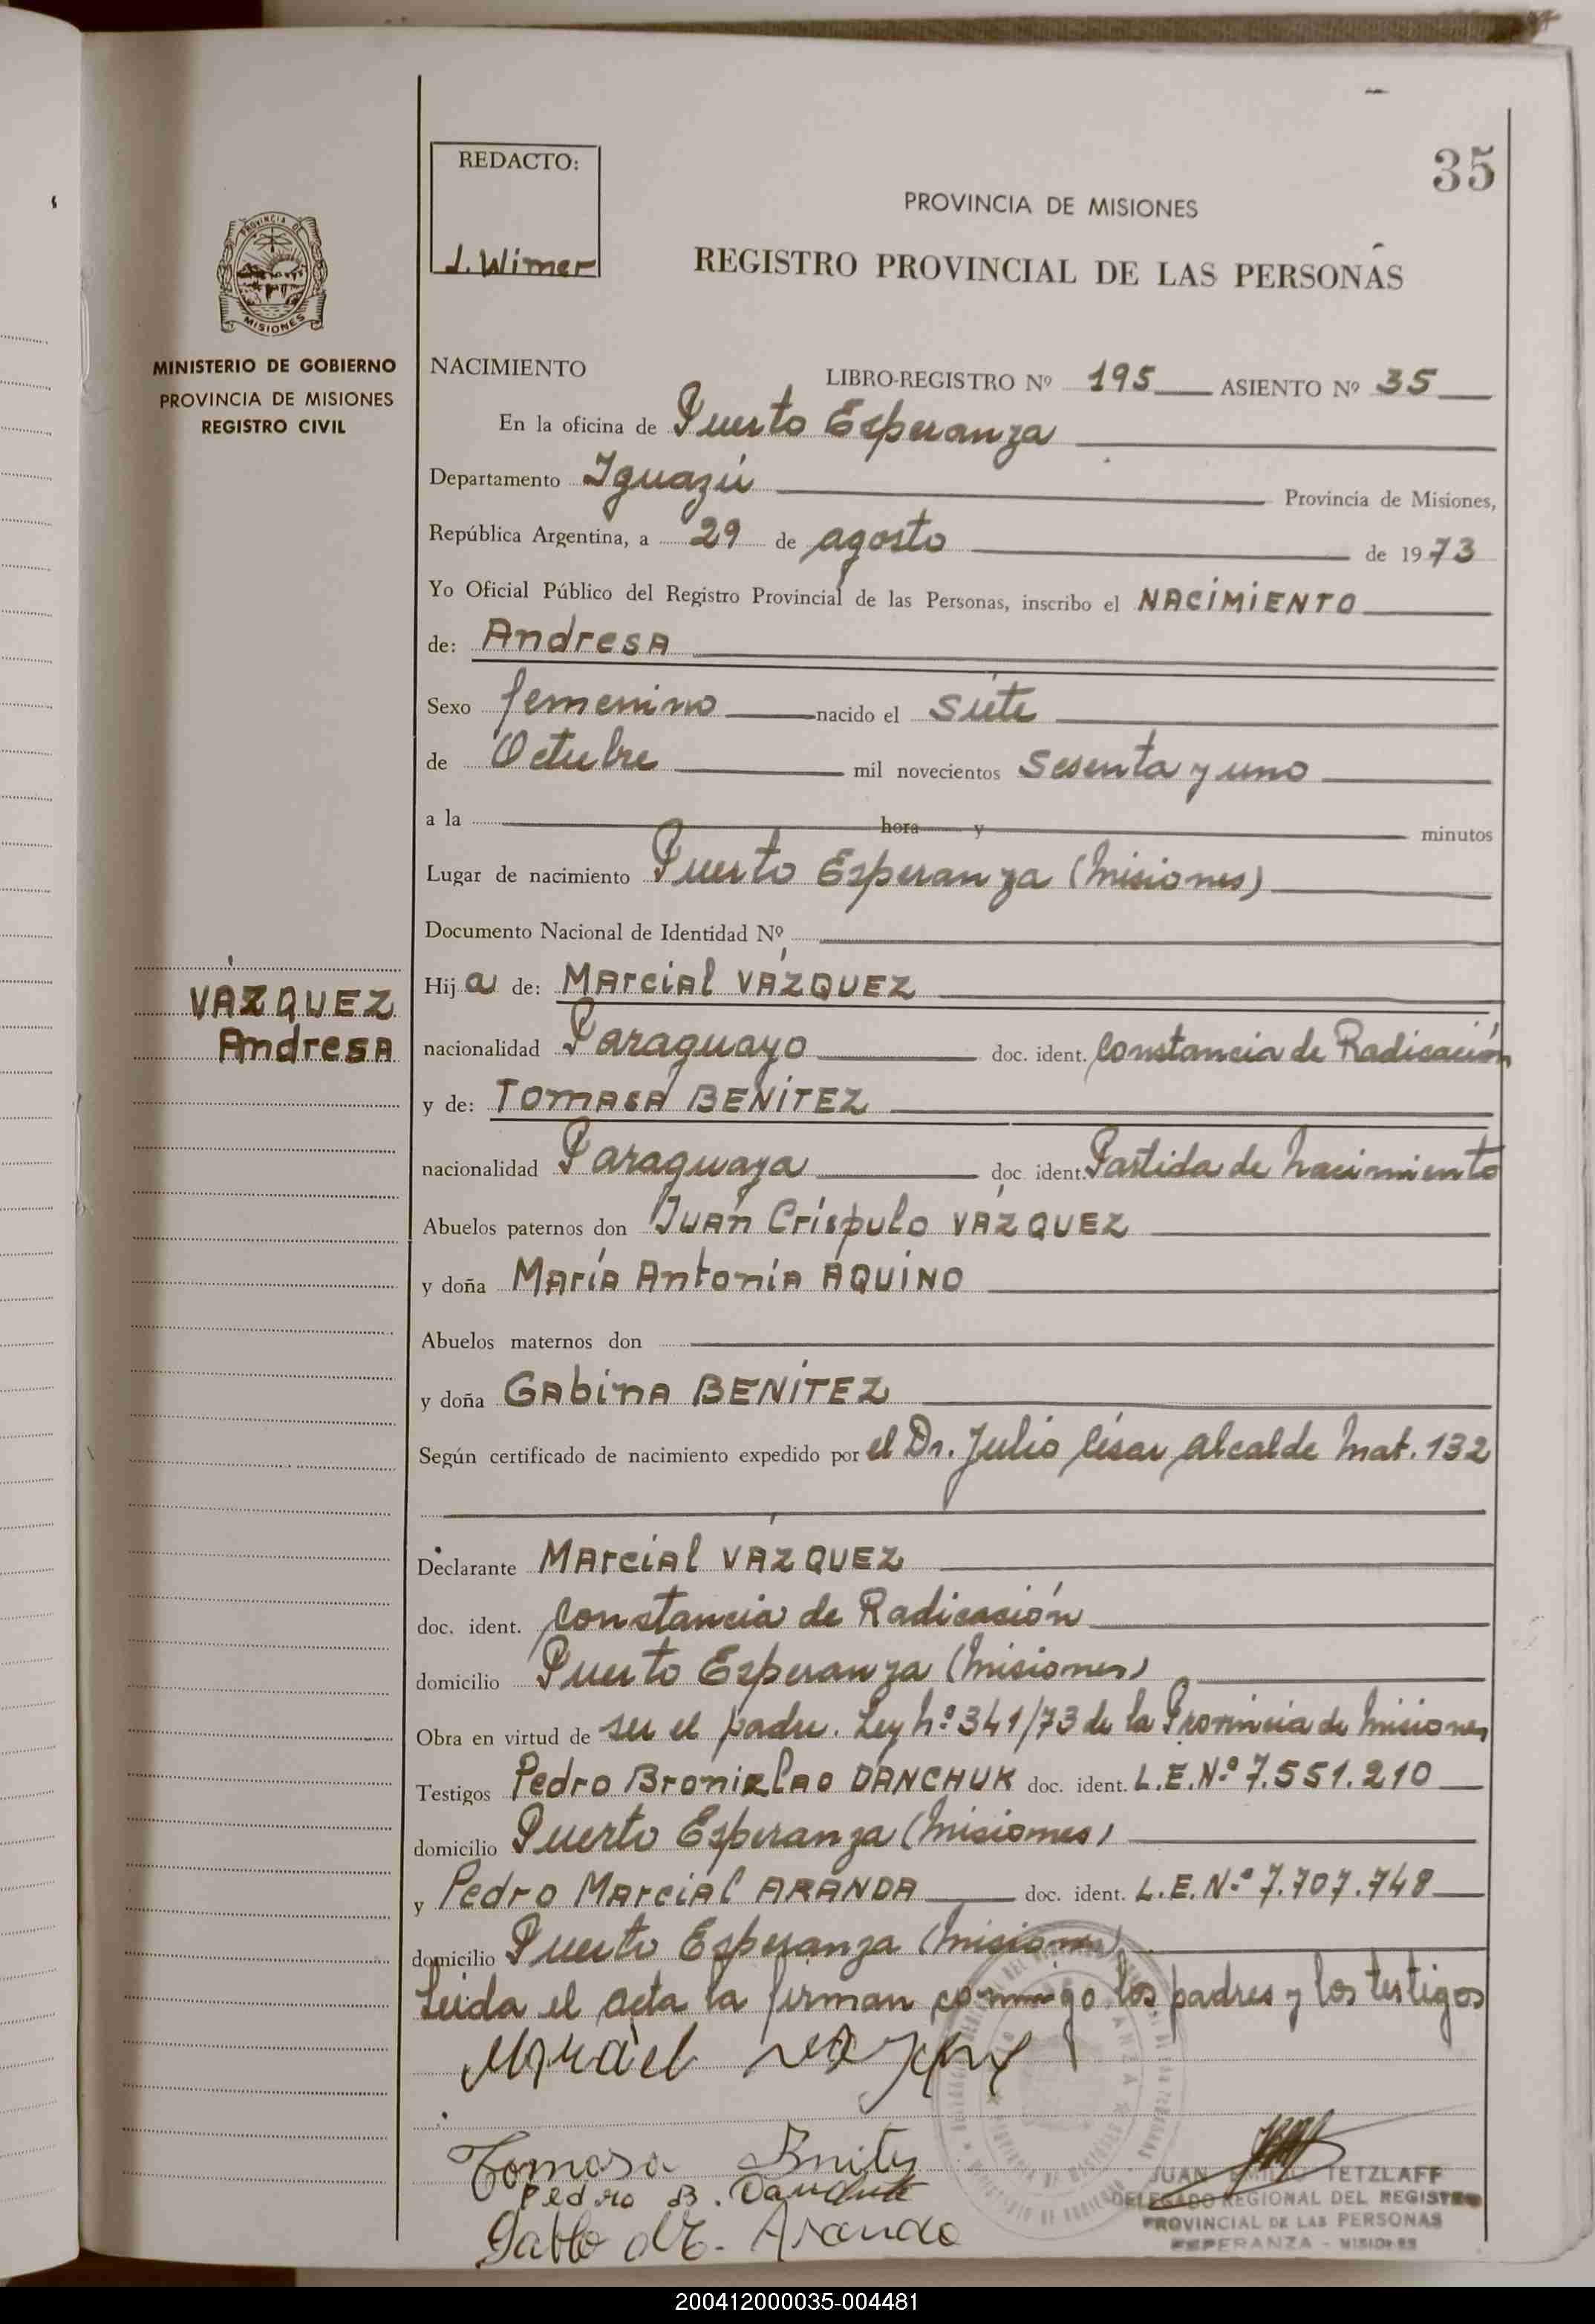 35
REDACTO:
J. Wimer
PROVINCIA DE MISIONES
REGISTRO PROVINCIAL DE LAS PERSONAS
PROVINCIA DE
MISIONES
MINISTERIO DE GOBIERNO
PROVINCIA DE MISIONES
REGISTRO CIVIL
NACIMIENTO LIBRO-REGISTRO Nº 195 ASIENTO Nº 35
En la oficina de Puerto Esperanza
Departamento Iguazú Provincia de Misiones,
República Argentina, a 29 de agosto de 1973
Yo Oficial Público del Registro Provincial de las Personas, inscribo el NACIMIENTO
de: Andresa
Sexo femenino nacido el siete
de Octubre mil novecientos sesenta y uno
a la hora y minutos
Lugar de nacimiento Puerto Esperanza (Misiones)
Documento Nacional de Identidad Nº
VÁZQUEZ
Andresa
Hija de: Marcial VÁZQUEZ
nacionalidad Paraguayo doc. ident. Constancia de Radicación
y de: Tomasa BENÍTEZ
nacionalidad Paraguaya doc ident. Partida de Nacimiento
Abuelos paternos don Juan Críspulo VÁZQUEZ
y doña María Antonia AQUINO
Abuelos maternos don
y doña Gabina BENÍTEZ
Según certificado de nacimiento expedido por el Dr. Julio César Alcalde Mat. 132
Declarante Marcial VÁZQUEZ
doc. ident. Constancia de Radicación
domicilio Puerto Esperanza (Misiones)
Obra en virtud de ser el padre. Ley Nº 341/73 de la Provincia de Misiones
Testigos Pedro Bronizlao DANCHUK doc. ident. L.E. Nº 7.551.210
domicilio Puerto Esperanza (Misiones)
y Pedro Marcial ARANDA doc. ident. L.E. Nº 7.707.748
domicilio Puerto Esperanza (Misiones)
Leida el acta la firman conmigo los padres y los testigos
Tomasa
Pedro B.
Pablo Aranda
JUAN EMILIO TETZLAFF
DELEGADO REGIONAL DEL REGISTRO
PROVINCIAL DE LAS PERSONAS
ESPERANZA - MISIONES
200412000035-004481